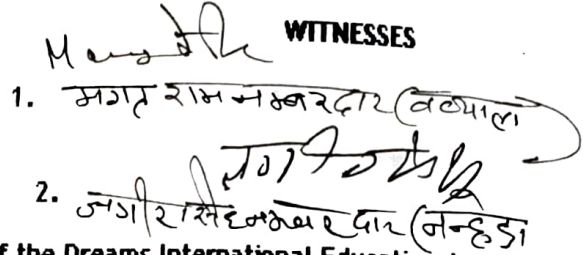 WITNESSES
1. मगत राम नम्बरदार (वल्याला)
2. जगीर सिंह नम्बरदार (नन्हेडा
f the Dreams International Education